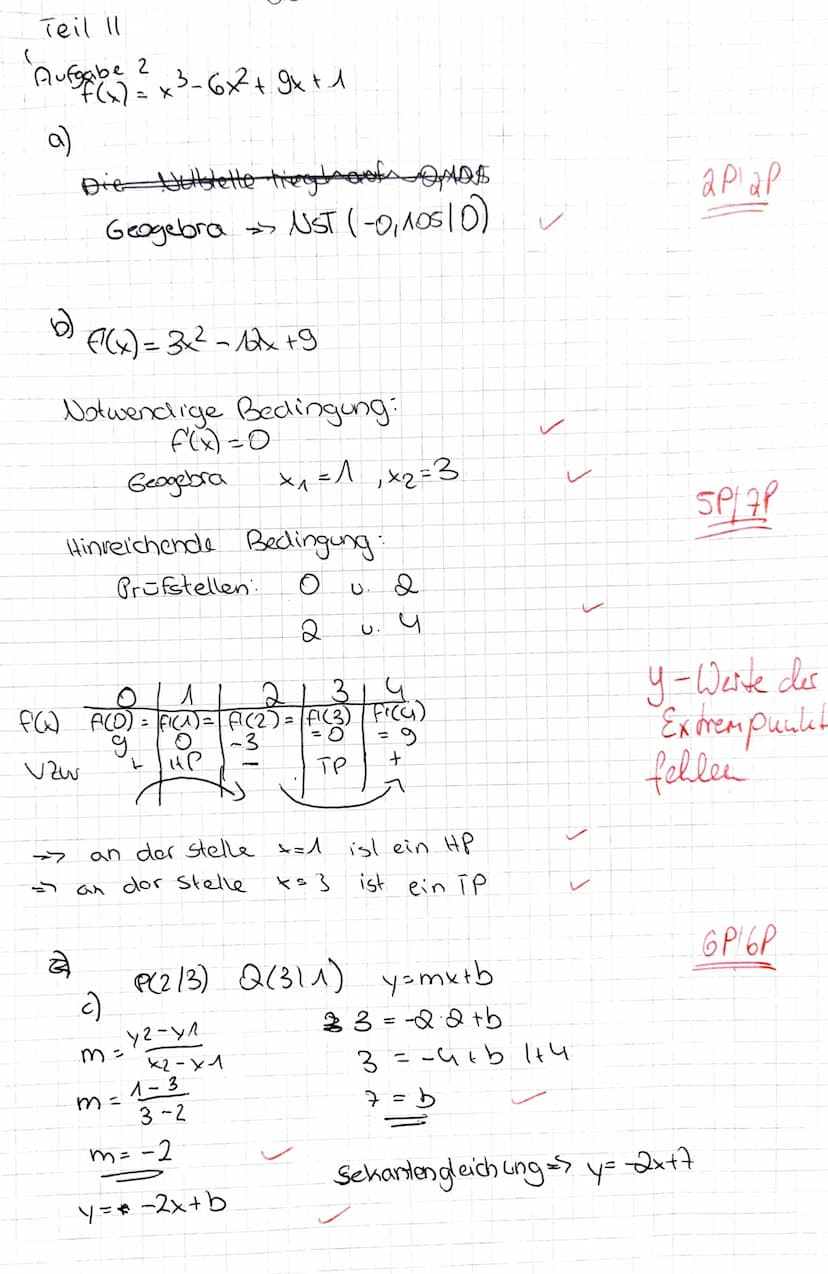 Teil II
Aufgabe 2
f(x) = x³ - 6x² + 9x + 1
a)
Die Nullstelle liegt auf -0,105
2P/2P
Geogebra => NST (-0,105|0) ✓
b) f'(x) = 3x² - 12x + 9
Notwendige Bedingung:
f'(x) = 0 ✓
Geogebra x₁ = 1, x₂ = 3 ✓
5P/7P
Hinreichende Bedingung:
Prüfstellen: 0 u. 2
2 u. 4 ✓
y-Werte der
Extrempunkt
fehlen
0 | 1 | 2 | 3 | 4
f'(x) f'(0) = | f'(1) = | f'(2) = | f'(3) | f'(4)
9 | 0 | -3 | = 0 | = 9
VZW + | HP | - | TP | +
=> an der Stelle x=1 ist ein HP ✓
=> an der Stelle x=3 ist ein TP ✓
6P/6P
c) P(2/3) Q(3|1) y=mx+b
m = y2-y1 / x2-x1
m = 1-3 / 3-2
m = -2 ✓
y = -2x+b ✓
3 = -2·2+b
3 = -4+b |+4
7 = b ✓
Sekantengleichung => y = -2x+7